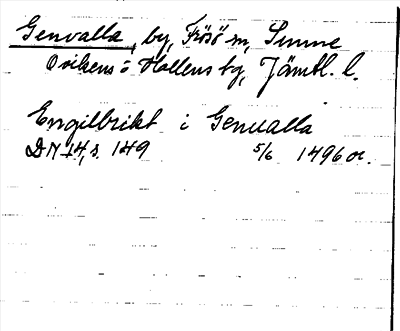 Genvalla, by, Frösö sn, Sunne
Ovikens o Hallens tg, Jämtl. l.
Engilbrikt i Genualla
DN 14, s. 149 5/6 1496 or.